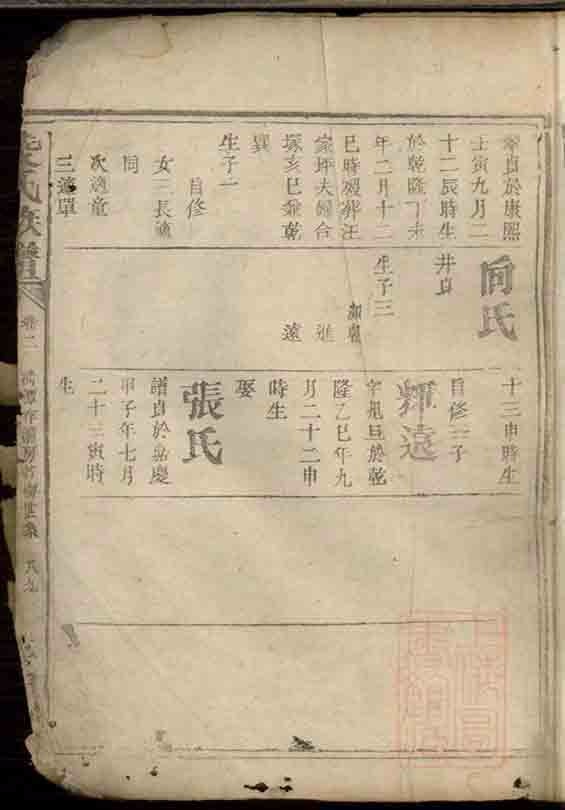 於康熙
壬寅九月二
十二辰時生
於乾隆丁未
年二月十二
巳時歿葬汪
家坪夫婦合
塚亥巳兼乾
巽
生子一
自修
女三長適
同
次適童
三適單
向氏
井貞
生子三
進
遠
十三申時生
自修三子
輝遠
於乾
隆乙巳年九
月二十二申
時生
娶
張氏
譜貞於嘉慶
甲子年七月
二十三寅時
生
氏族譜
卷二